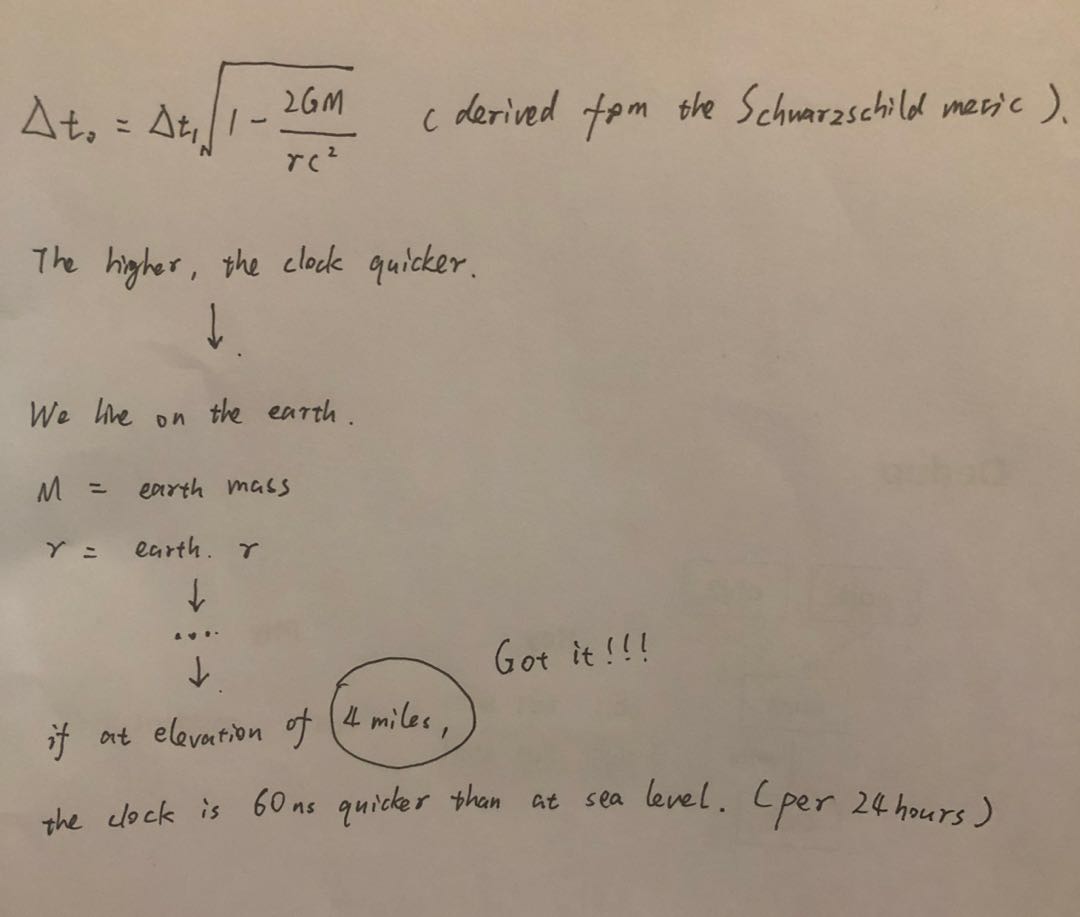 Δt₀ = Δt₁√(1 - 2GM/rc²) (derived from the Schwarzschild metric).
The higher, the clock quicker.
↓
We live on the earth.
M = earth mass
r = earth. r
↓
....
↓
Got it!!!
if at elevation of 4 miles,
the clock is 60 ns quicker than at sea level. (per 24 hours)